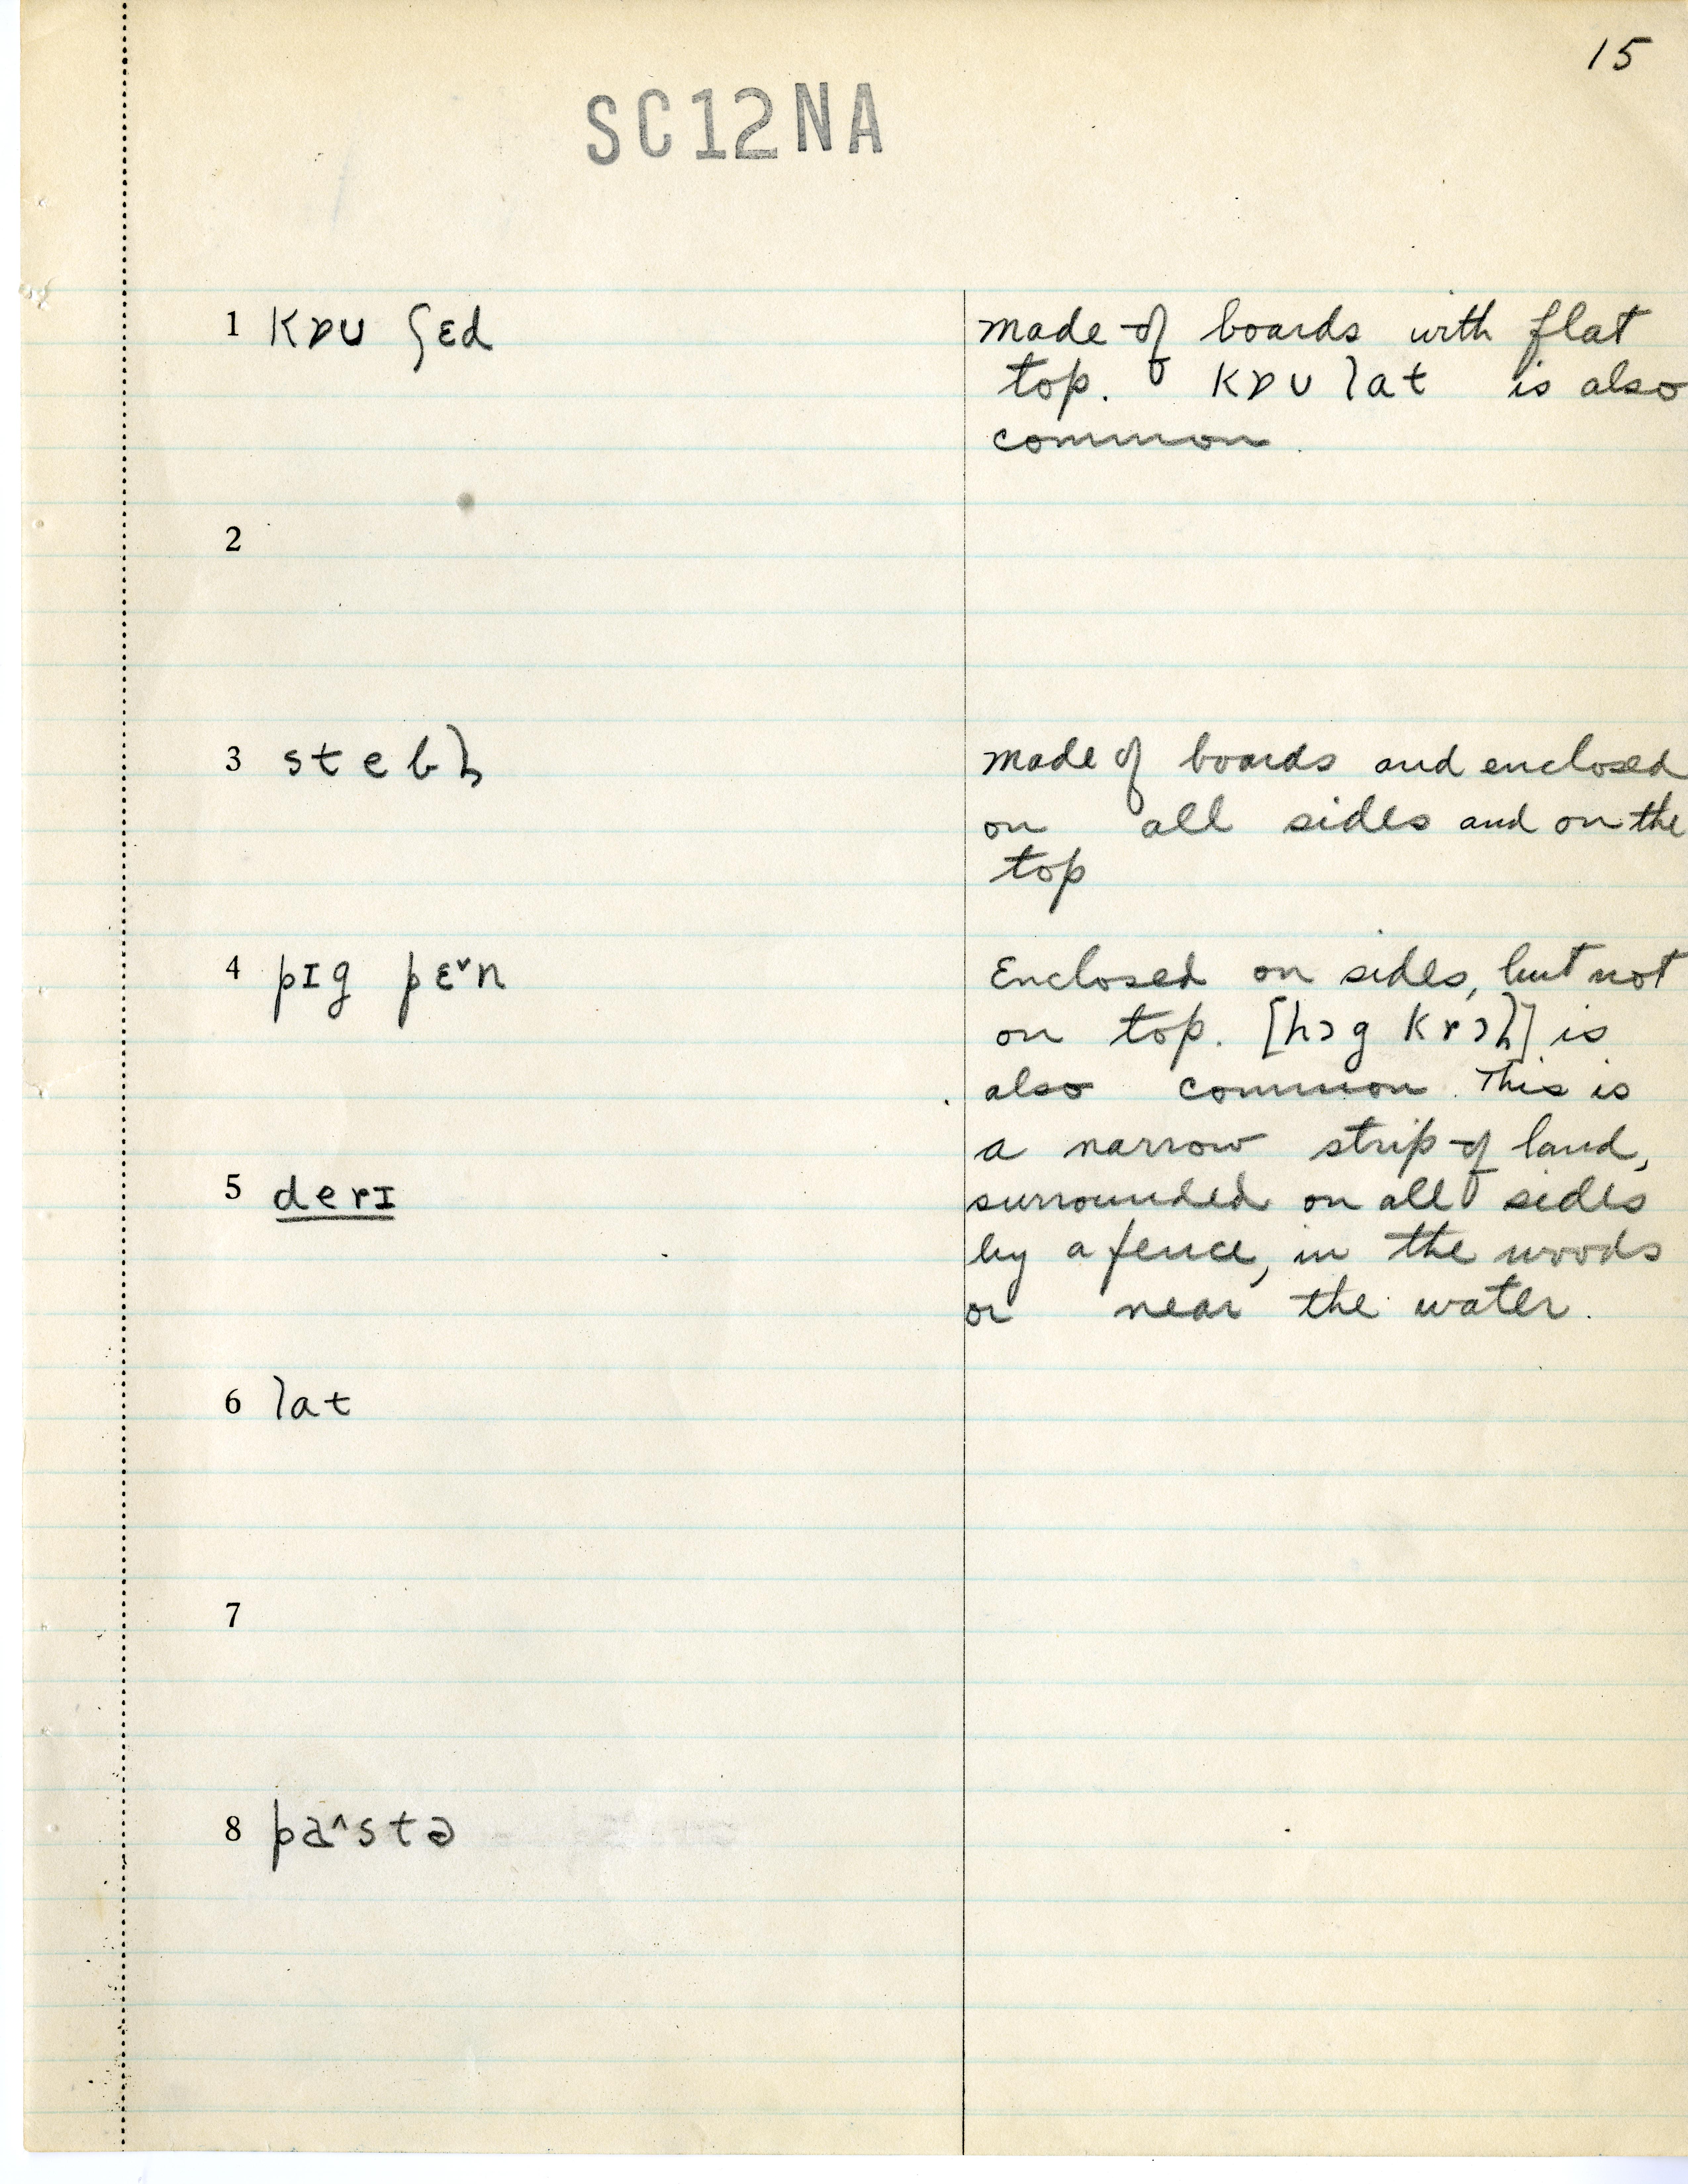 15
SC12NA
1 kɒu ʃɛd
made of boards with flat
top. kɒu lat is also
common.
2
3 stebl̩
made of boards and enclosed
on all sides and on the
top
4 pɪg pɛ˅n
Enclosed on sides, but not
on top. [hɔg krɔl̩] is
also common. This is
a narrow strip of land,
5 derɪ
surrounded on all sides
by a fence, in the woods
or near the water.
6 lat
7
8 pa^stə